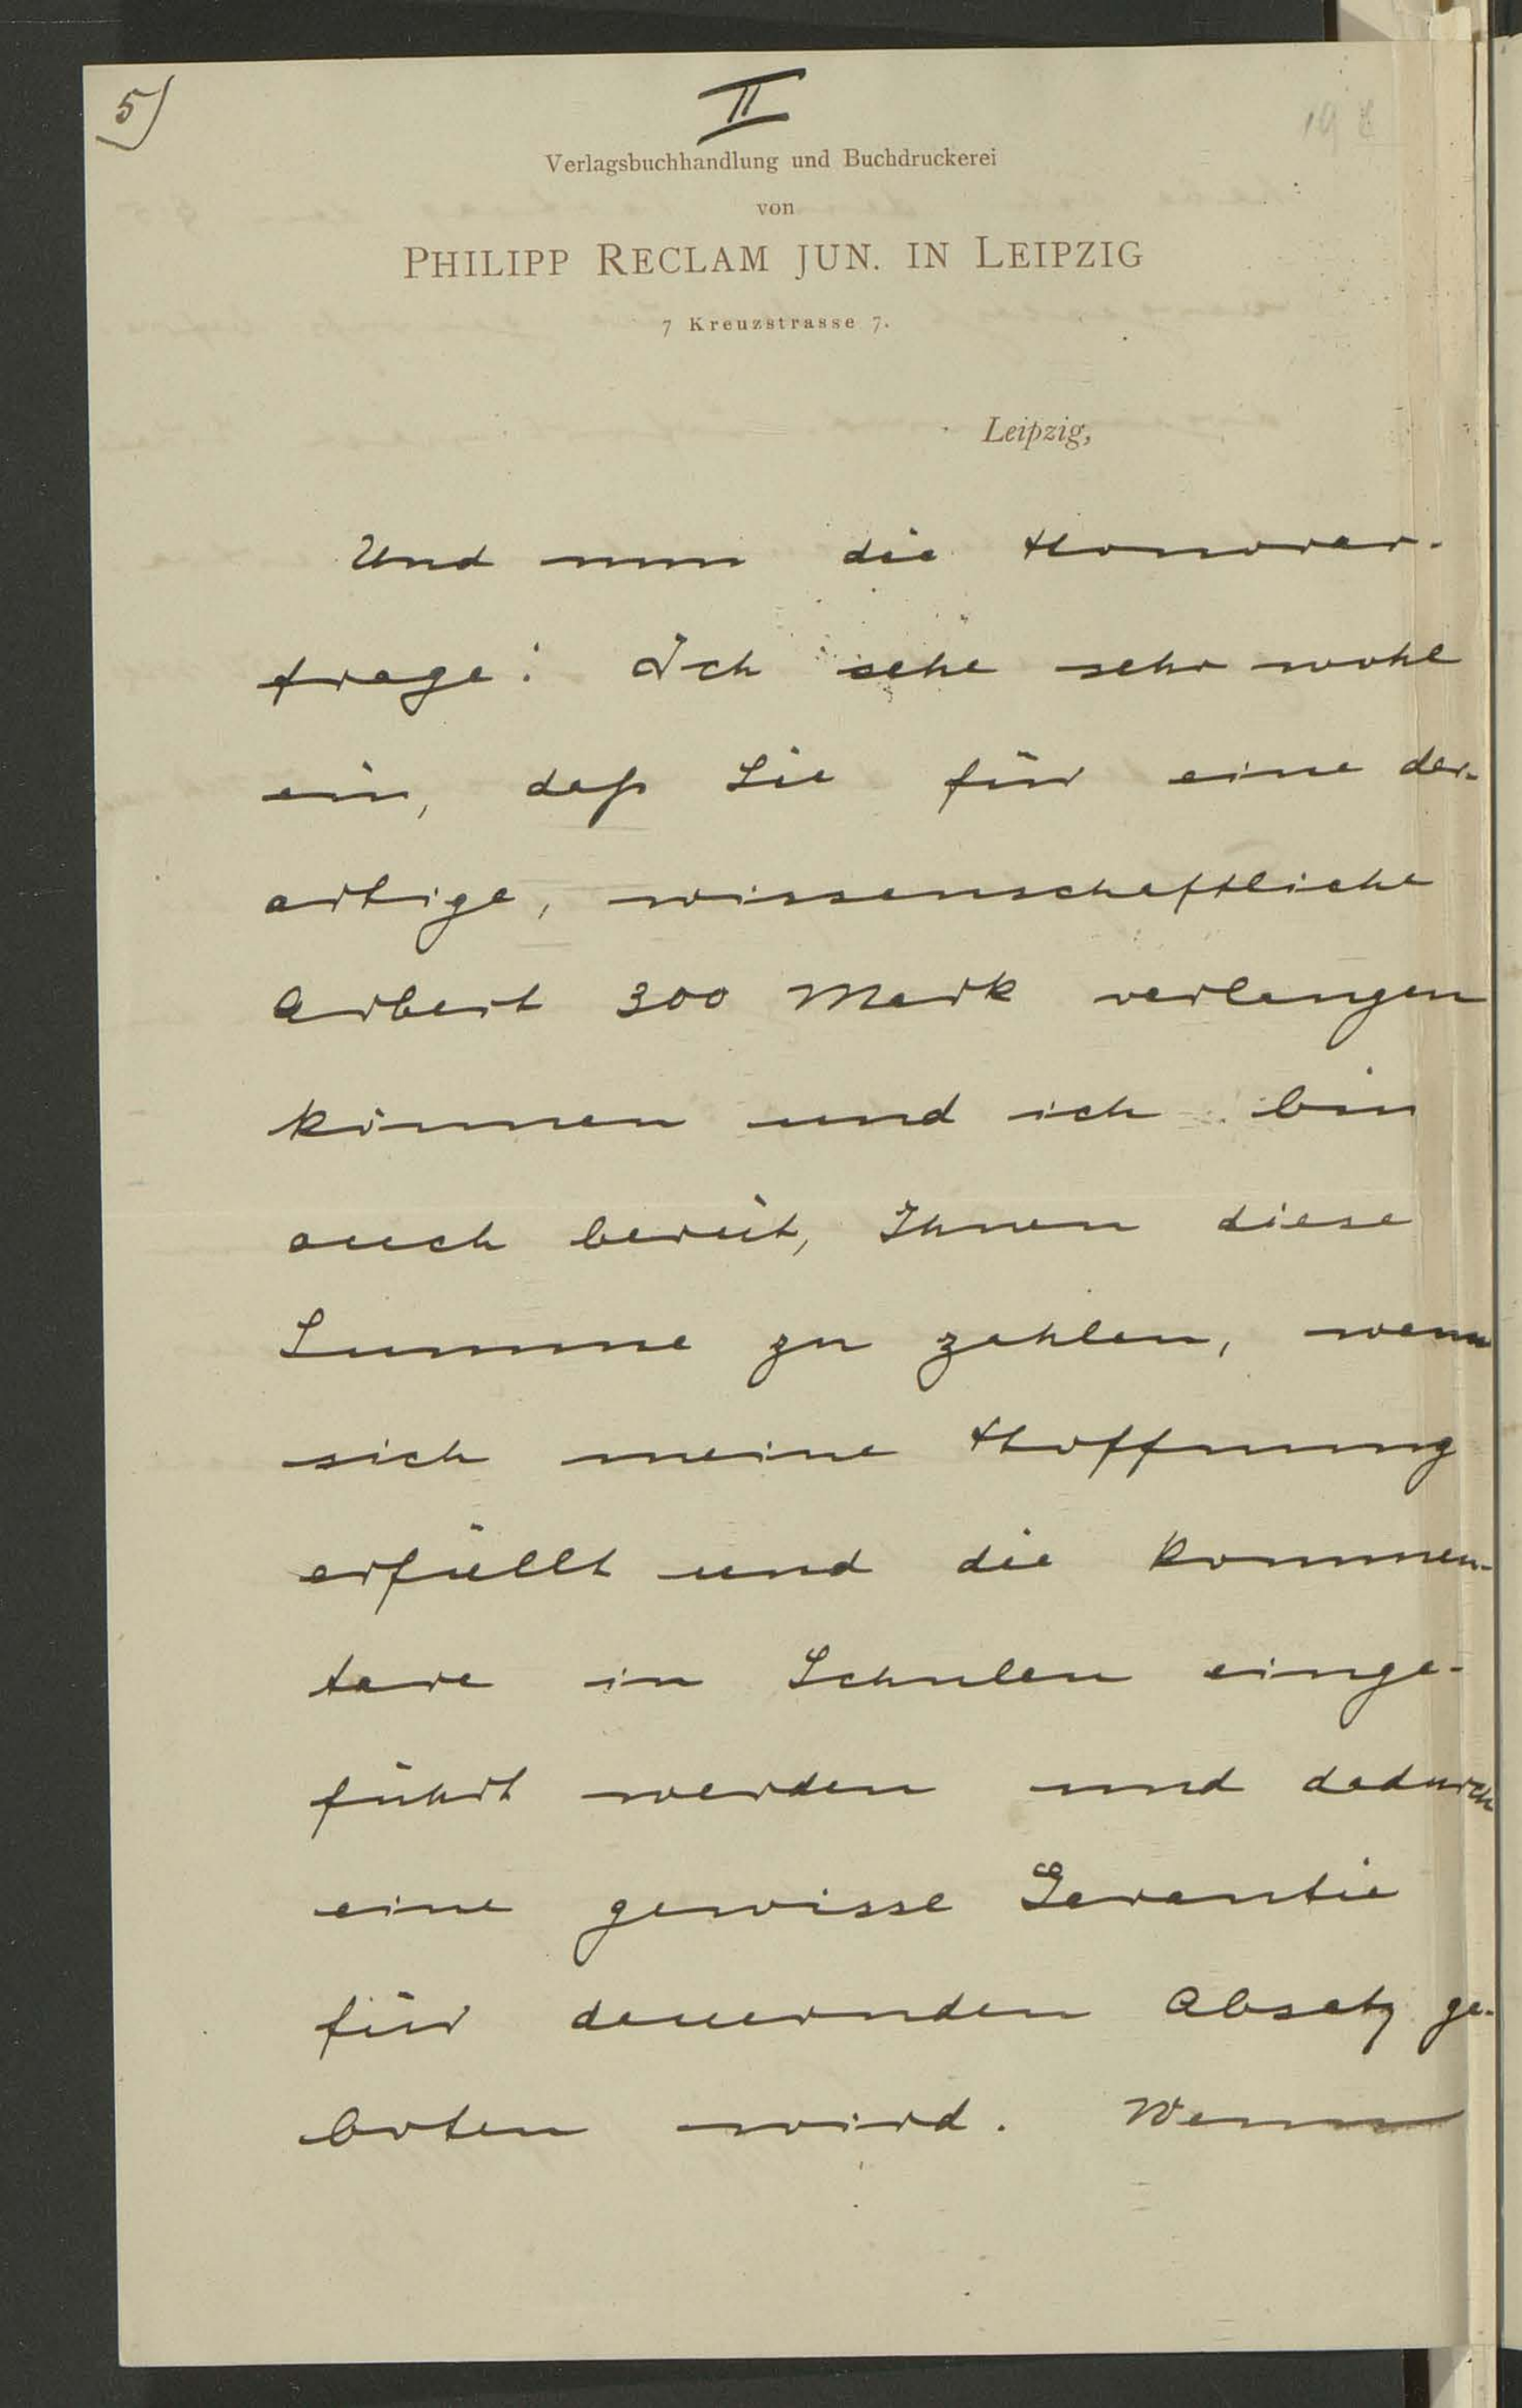 5)
II
Verlagsbuchhandlung und Buchdruckerei
von
PHILIPP RECLAM JUN. IN LEIPZIG
7 Kreuzstrasse 7.
Leipzig,
Und nun die Honorar-
frage: Ich sehe sehr wohl
ein, daß Sie für eine der-
artige, wissenschaftliche
Arbeit 300 Mark verlangen
können und ich bin
auch bereit, Ihnen diese
Summe zu zahlen, wenn
sich meine Hoffnung
erfüllt und die Kommen-
tare in Schulen einge-
führt werden und dadurch
eine gewisse Garantie
für dauernden Absatz ge-
boten wird. Wenn